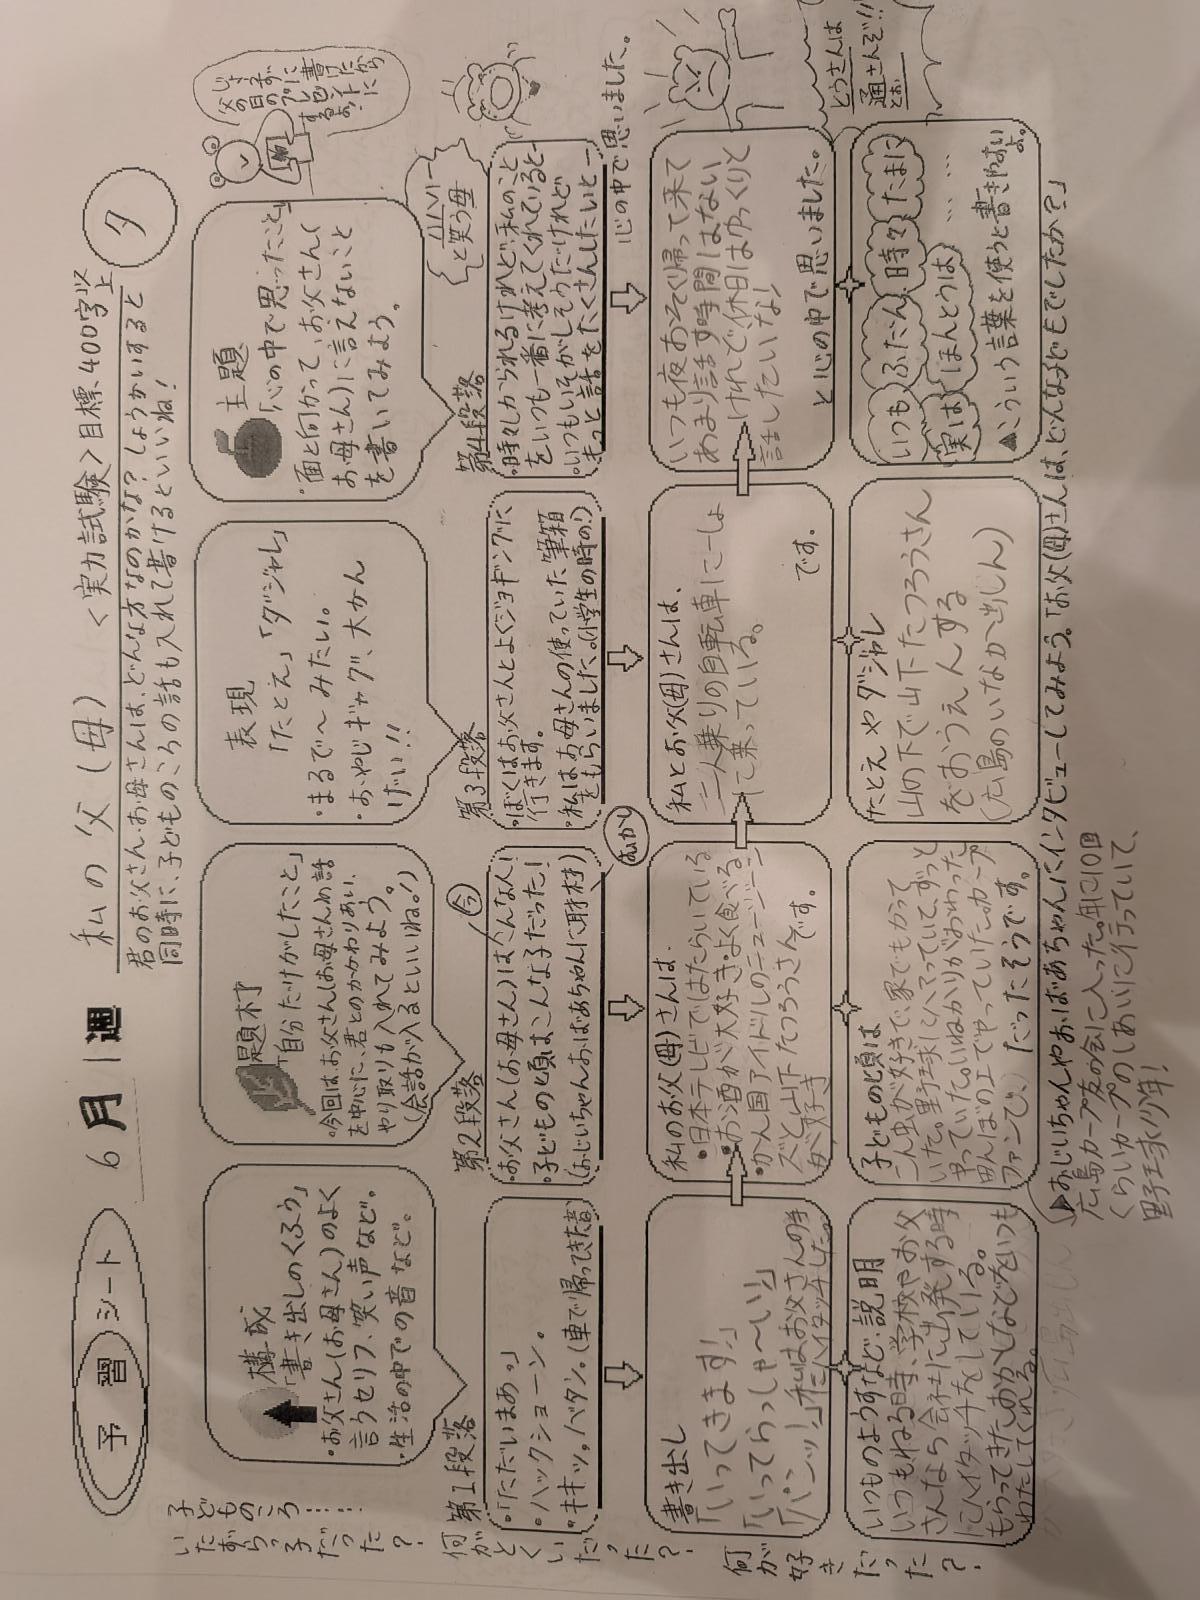 予習シート
6月1週
私の父(母)
<実力試験>目標400字以上
夕
君のお父さん、お母さんは、どんな方なのかな?しょうかいすると
同時に、子どものころの話も入れて書けるといいね!
構成
「書き出しのくふう」
・お父さん(お母さん)のよく
言うセリフ、笑い声など。
・生活の中での音など。
題材
「自分だけがしたこと」
・今回は、お父さん(お母さん)の話
を中心に、君とのかかわりあい、
やり取りも入れてみよう。
(会話が入るといいね!)
表現
「たとえ」「ダジャレ」
・まるで〜みたい。
・おやじギャグ、大かん
げい!!
主題
「心の中で思ったこと」
・面と向かって、お父さん(
お母さん)に言えないこと
を書いてみよう。
じょうずに書けたから
父の日のプレゼントに
するね。
子どものころ……
いたずらっ子だった?
何がとくいだった?
何が好きだった?
第1段落
・「ただいまあっ」
・ハックショーン。
・キキッ、バタン。(車で帰ってきた音)
第2段落
今
・お父さん(お母さん)はこんな人!
・子どもの頃はこんな子だった!
(おじいちゃんおばあちゃんに取材)
むかし
第3段落
・ぼくはお父さんとよくジョギングに
行きます。
・私はお母さんの使っていた筆箱
をもらいました。(小学生の時の!)
第4段落
ハハハー
と笑う母
・時々しかられるけれど、私のこと
をいつも一番に考えてくれていると―
・いつもいそがしそうだけれど
きっと話をたくさんしたいと―
心の中で思いました。
書き出し
「いってきます!」
「いってらっしゃ〜い!」
「パンッ!」私はお父さんの手
にハイタッチした。
私のお父(母)さんは
・日本テレビではたらいている
・お酒が大好き・よく食べる
・かん国アイドルのニュージーン
ズと山下たつろうさん
が好き
です。
私とお父(母)さんは、
二人乗りの自転車に一しょ
に乗っている。
です。
いつも夜おそく帰って来て
あまり話す時間はない
けれど、休日はゆっくりと
話したいな!
と心の中で思いました。
いつものようすなど、説明
いつもねる時、学校やお父
さんなら会社に出発する時
にハイタッチをしている。
もらってきたおかしなどをいつも
わたしてくれる。
子どもの頃は
こん虫が好きで、家でもかって
いた。野球にハマっていて、ずっと
やっていた。いねかりがおわった
田んぼの上でやっていた。カープ
ファンで、
だったそうです。
たとえやダジャレ
山の下で山下たつろうさん
をおうえんする
(広島のいなか出しん)
いつも ふだん 時々 たまに
実は ほんとうは ……
▲こういう言葉を使うと書きやすいよ。
とうさんは
通さんぞ!!
とお
▶おじいちゃんやおばあちゃんにインタビューしてみよう。「お父(母)さんは、どんな子どもでしたか?」
広島カープ友の会に入った。年に10回
くらいカープのしあいに行っていて、
野球少年!